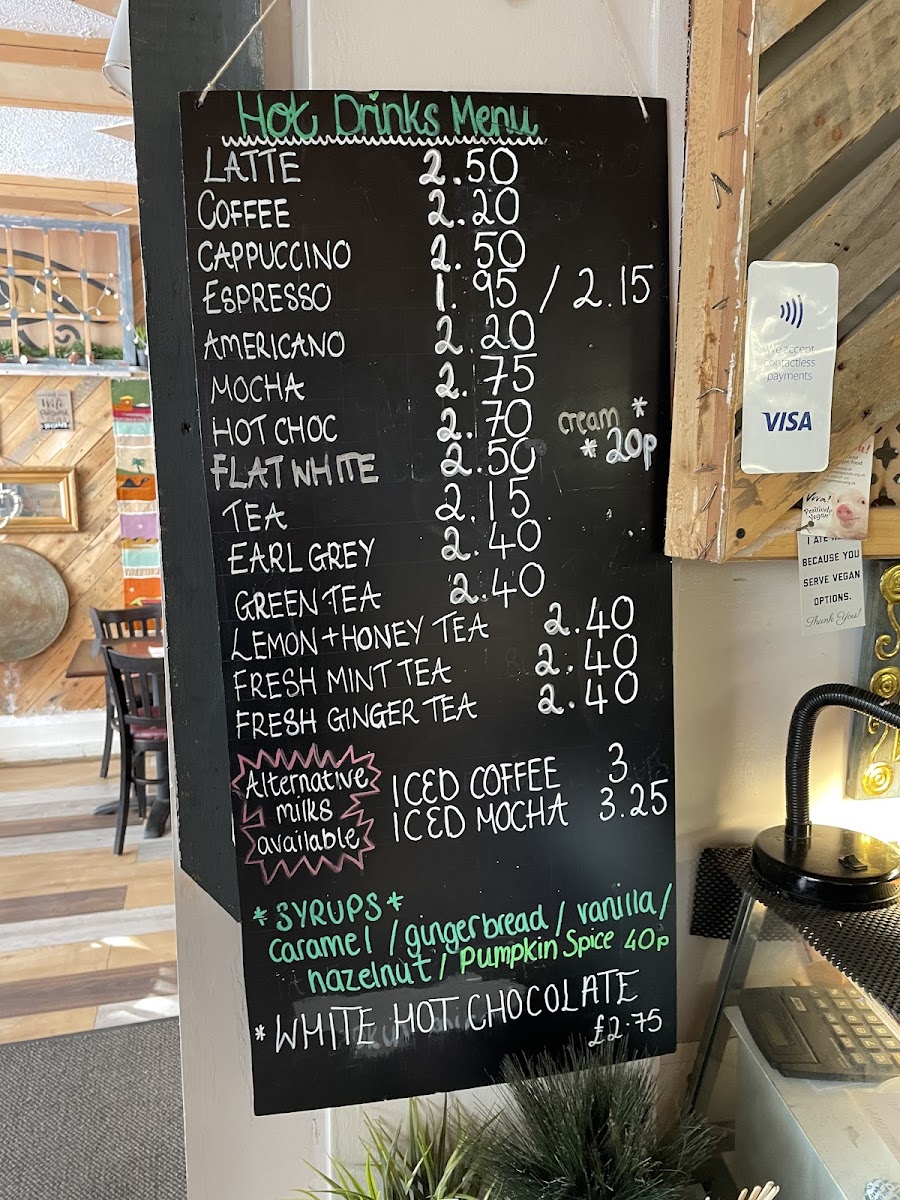 Hot Drinks Menu
LATTE 2.50
COFFEE 2.20
CAPPUCCINO 2.50
ESPRESSO 1.95 / 2.15
AMERICANO 2.20
MOCHA 2.75
HOT CHOC 2.70
cream *
* 20p
FLAT WHITE 2.50
TEA 2.15
EARL GREY 2.40
GREEN TEA 2.40
LEMON + HONEY TEA 2.40
FRESH MINT TEA 2.40
FRESH GINGER TEA 2.40
Alternative
milks
available
ICED COFFEE 3
ICED MOCHA 3.25
*SYRUPS*
caramel / gingerbread / vanilla /
hazelnut / Pumpkin Spice 40p
*WHITE HOT CHOCOLATE
£2.75
We accept
contactless
payments
VISA
Viva!
Positively
Vegan
BECAUSE YOU
SERVE VEGAN
OPTIONS.
Thank You!
Wifi